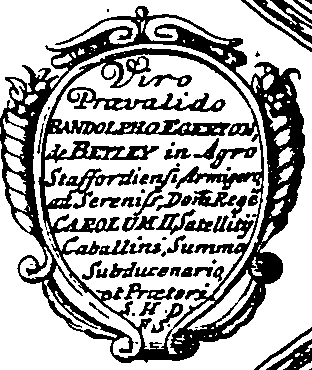 Viro
Prævalido
RANDOLPHO EGERTON,
de BETLEY in Agro
Staffordiensi, Armigero,
ad Sereniss, Dom Rege
CAROLUM II, Satellitij
Caballini, Summo
Subducenario,
et Prætori.
S. H. D.
F S.